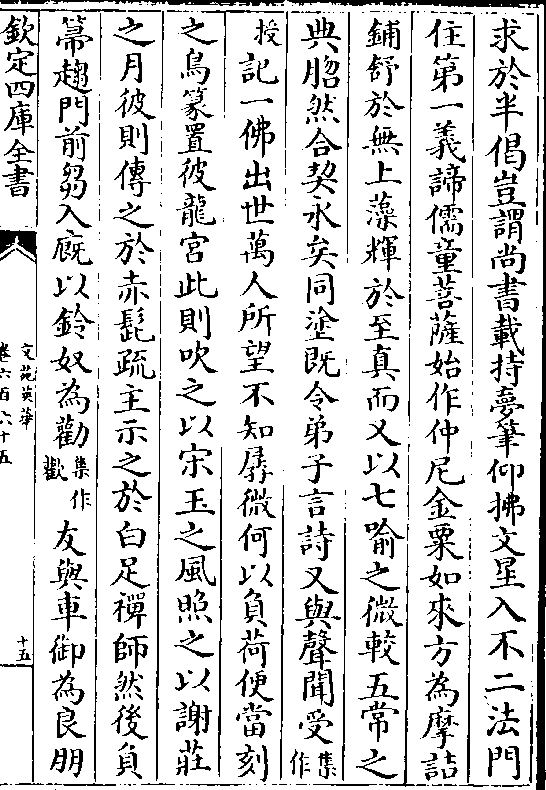 求於半偈豈謂尚書載持夢筆仰拂文星入不二法門
住第一義諦儒童菩薩始作仲尼金粟如來方為摩詰
鋪舒於無上藻輝於至真而又以七喻之微較五常之
典𦚾然合契永矣同塗既令弟子言詩又與聲聞受集作
授記一佛出世萬人所望不知孱微何以負荷便當刻
之鳥篆置彼龍宮此則吹之以宋玉之風照之以謝莊
之月彼則傳之於赤髭疏主示之於白足禪師然後負
箒趨門前芻入廐以鈴奴為勸集作歡友與車御為良朋
欽定四庫全書
文苑英華
卷六百六十五
十五